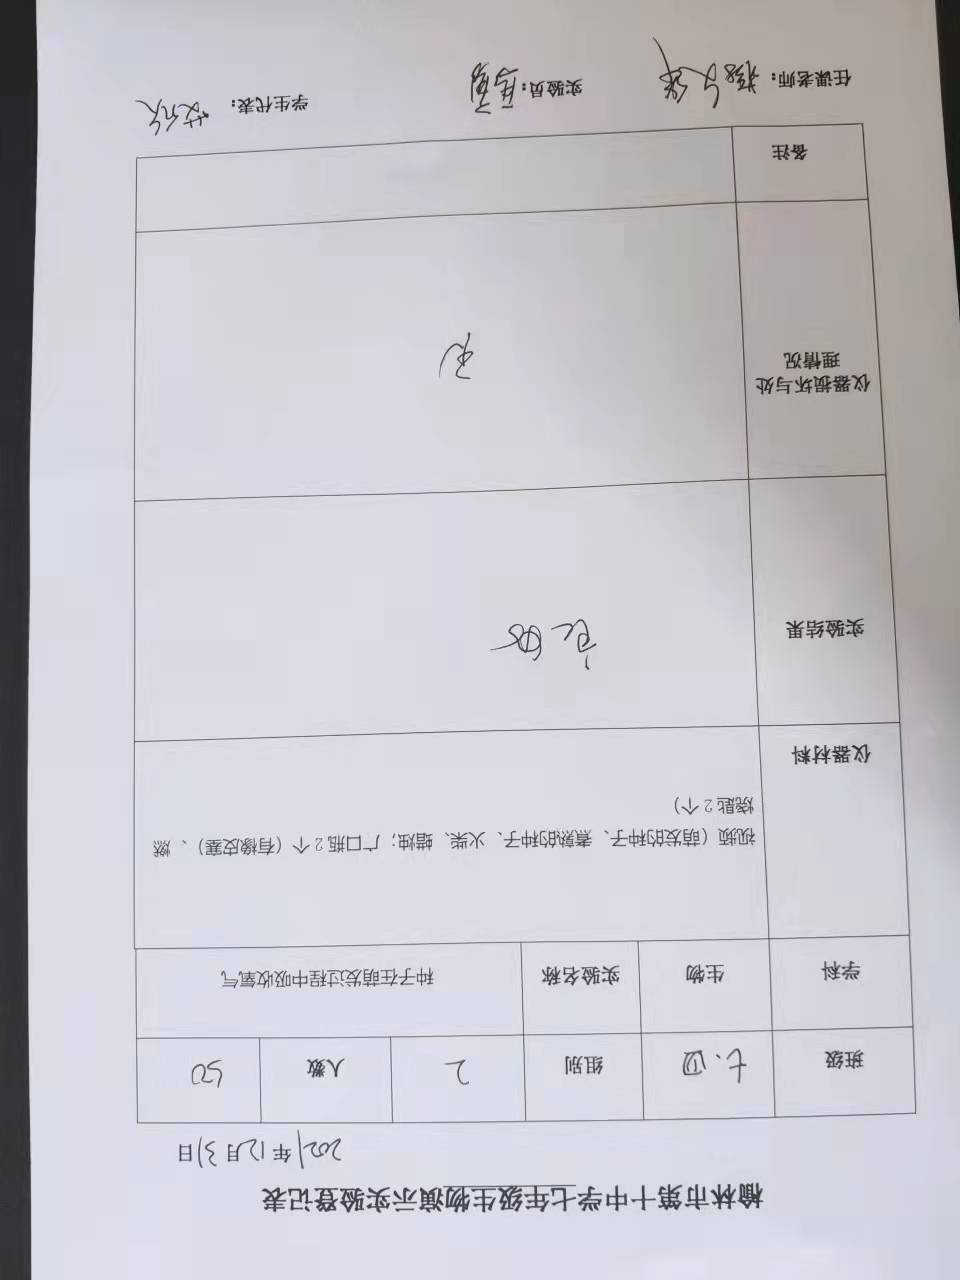 榆林市第十中学七年级生物演示实验登记表
2021年12月31日
班级 七.四 组别 2 人数 50
学科 生物 实验名称 种子在萌发过程中吸收氧气
仪器材料
视频（萌发的种子、煮熟的种子、火柴、蜡烛；广口瓶2个（有橡皮塞）、燃
烧匙2个）
实验结果
完好
仪器损坏与处
理情况
无
备注
任课老师：
实验员：
学生代表：